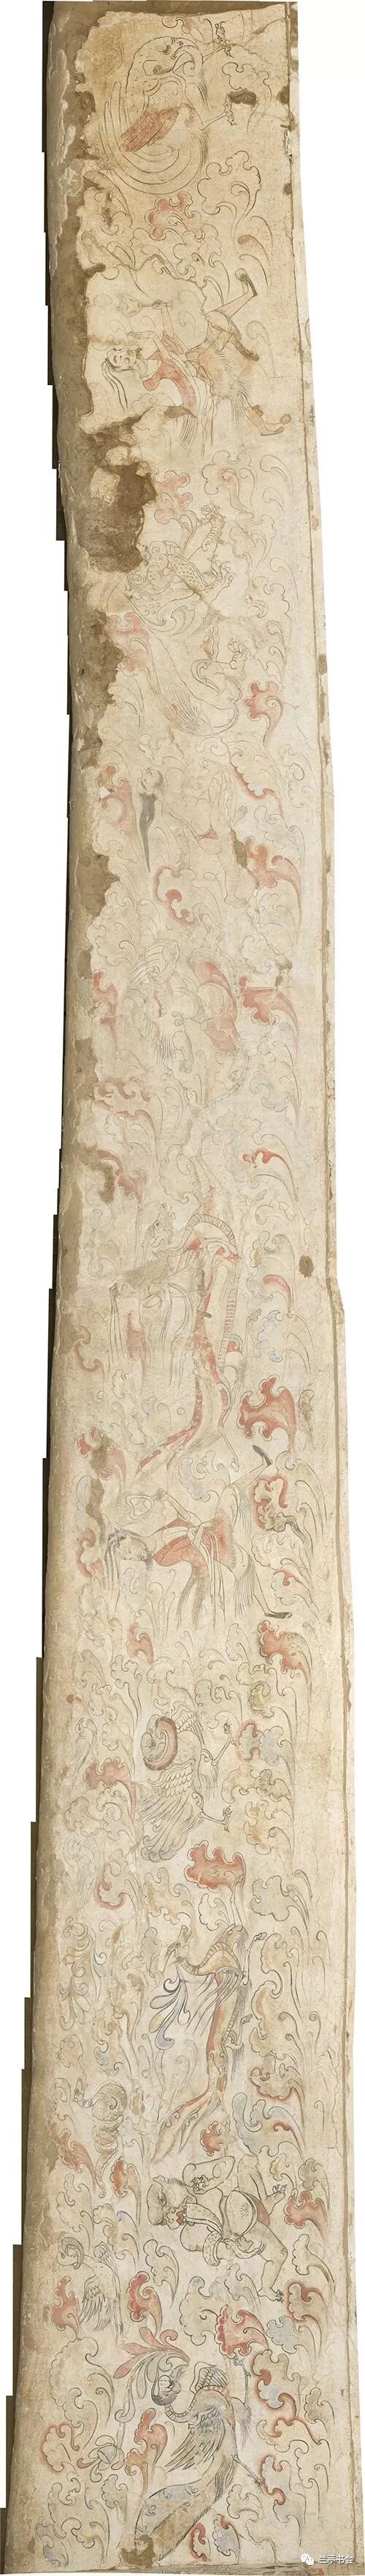 兰亭书会